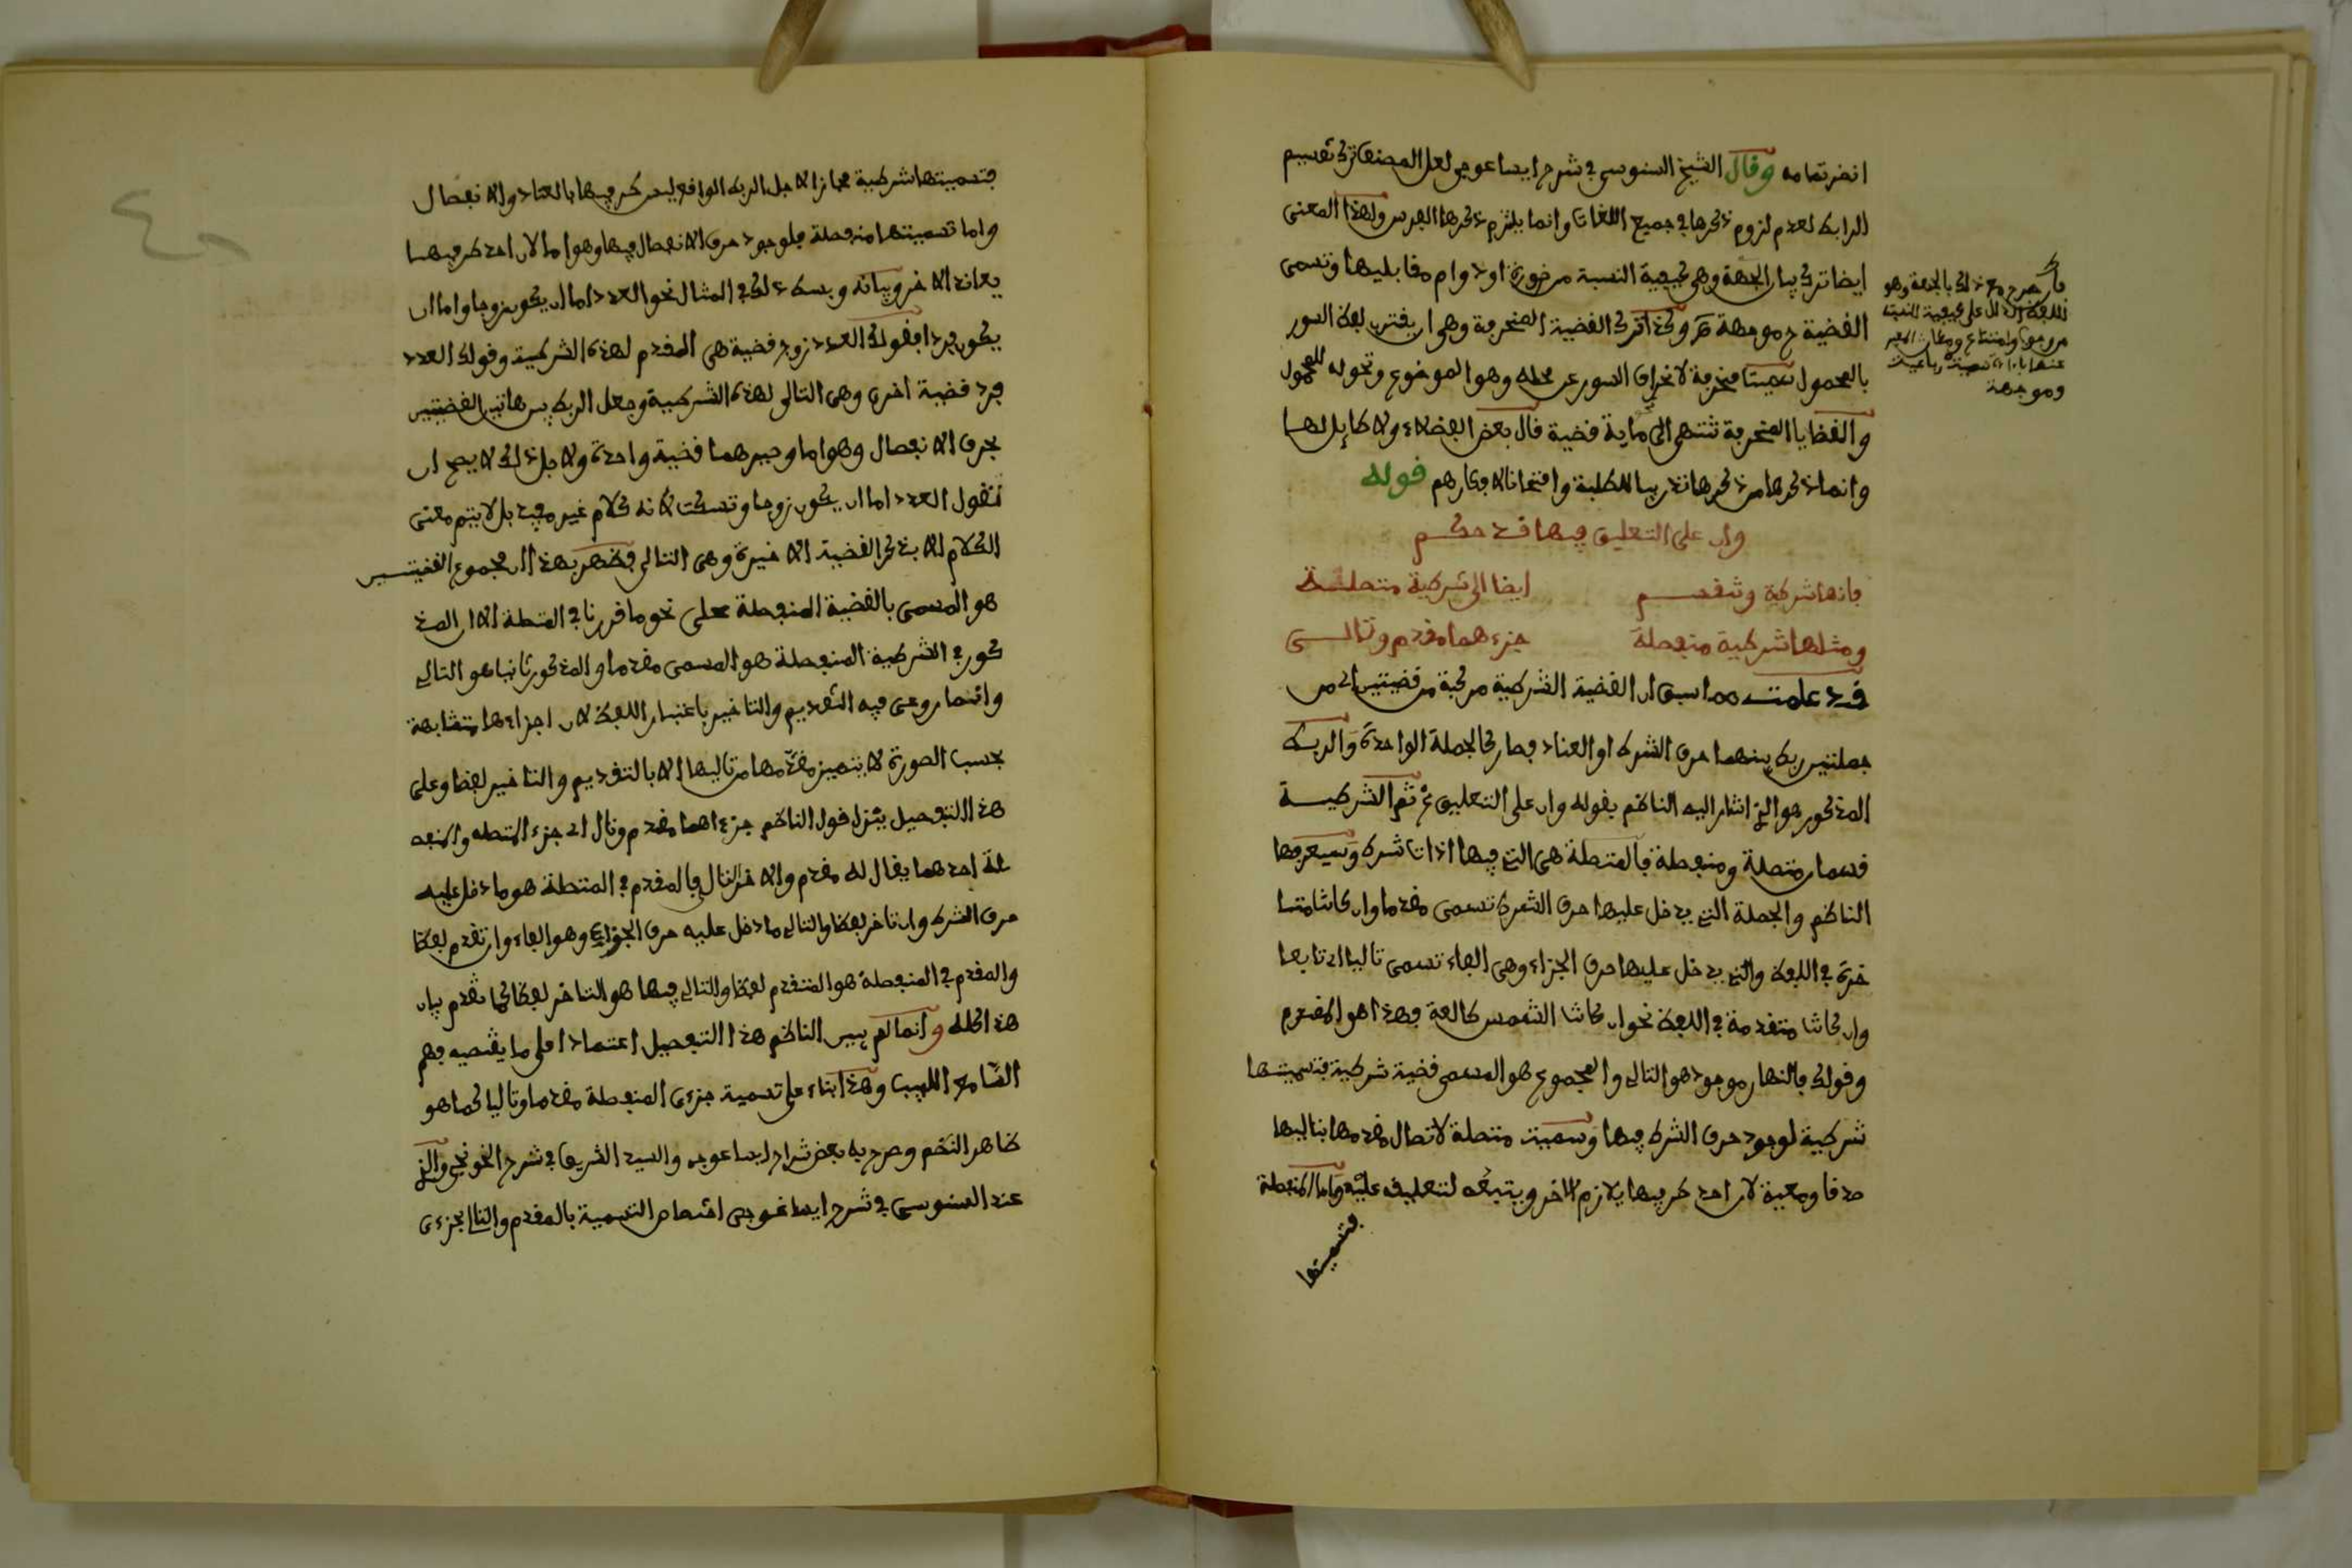 انضر تمامه وقال الشيخ السنوسي في شرح ايساغوجي لعل المصنف ترك تقسيم
الرابط لعدم لزوم ذكرها في جميع اللغات وانما يلتزم ذكرها الفرس ولهذا المعنى
ايضا ترك بيان الجهة وهي كيفية النسبة من ضرورة او دوام مقابليها وتسمى
القضية ح موجهة وكذا ترك القضية المنحرفة وهي ان يقترن لفظ السور
بالمحمول سميت منحرفة لانحراف السور عن محله وهو الموضوع وتحوله للمحمول
والقضايا المنحرفة تنتهي الى مائة قضية قال بعض الفضلاء ولا طايل لها
وانما ذكرها من ذكرها تدريبا للطلبة وامتحانا لافكارهم قوله
وان على التعليق فيها قد حكم
فانها شركية وتنقسم ايضا الى شرطية متصلة
ومثلها شرطية منفصلة جزءهما مقدم وتالي
قد علمت مما سبق ان القضية الشرطية مركبة من قضيتين اي من
جملتين ربط بينهما حرف الشرط او العناد فصار كالجملة الواحدة والربط
المذكور هو الذي اشار اليه الناظم بقوله وان على التعليق ثم الشرطية
قسمان متصلة ومنفصلة فالمتصلة هي التي فيها اداة شرط وسيعرفها
الناظم والجملة التي يدخل عليها حرف الشرط تسمى مقدما وان كانت متا
خرة في اللفظ والتي يدخل عليها حرف الجزاء وهي الفاء تسمى تاليا اي تابعا
وان كانت متقدمة في اللفظ نحو ان كانت الشمس طالعة فهذا هو المقدم
وقولك فالنهار موجود هو التالي والمجموع هو المسمى قضية شرطية فتسميتها
شرطية لوجود حرف الشرط فيها وسميت متصلة لاتصال مقدمها بتاليها
صدقا ومعية لان احد طرفيها يلازم الاخر ويتبعه لتعليقه عليه واما المنفصلة
فتسميتها
ذلك بالجهة وهو
اللفظ الدال على كيفية النسبة
وموجهة
فتسميتها شرطية مجازا لاجل الربط الواقع بين طرفيها بالعناد والانفصال
واما تسميتها منفصلة فلوجود حرف الانفصال فيها وهو اما لان احد طرفيها
يعاند الاخر وبيانه وبسط ذلك في المثال نحو العدد اما ان يكون زوجا واما ان
يكون فردا فقولك العدد زوج قضية هي المقدم لهذه الشرطية وقولك العدد
فرد قضية اخرى وهي التالي لهذه الشرطية وجعل الربط بين هاتين القضيتين
بحرف الانفصال وهو اما وصيرهما قضية واحدة ولاجل ذلك لا يصح ان
تقول العدد اما ان يكون زوجا وتسكت لانه كلام غير مفيد بل لا يتم معنى
الكلام الا بذكر القضية الاخيرة وهي التالي فظهر بهذا ان مجموع القضيتين
هو المسمى بالقضية المنفصلة على نحو ما قررنا في المتصلة الا ان المذ
كور في الشرطية المنفصلة هو المسمى مقدما والمذكور ثانيا هو التالي
وانما روعي فيه التقديم والتاخير باعتبار اللفظ لان اجزاءها متشابهة
بحسب الصورة لا يتميز مقدمها من تاليها الا بالتقديم والتاخير لفظا وعلى
هذا التفصيل يتنزل قول الناظم جزءاهما مقدم وتال اي جزء المتصلة والمنفص
لة احدهما يقال له مقدم والاخر تال فالمقدم في المتصلة هو ما دخل عليه
حرف الشرط وان تاخر لفظا والتالي ما دخل عليه حرف الجزاء وهو الفاء وان تقدم لفظا
والمقدم في المنفصلة هو المتقدم لفظا والتالي فيها هو المتاخر لفظا كما تقدم بيان
هذا كله وانما لم يبين الناظم هذا التفصيل اعتمادا على ما يقتضيه فهم
السامع اللبيب وهذا بناء على تسمية جزءي المنفصلة مقدما وتاليا كما هو
ظاهر النظم وصرح به بعض شراح ايساغوجي والسيد الشريف في شرح الخونجي والذي
عند السنوسي في شرح ايساغوجي اختصاص التسمية بالمقدم والتالي بجزءي